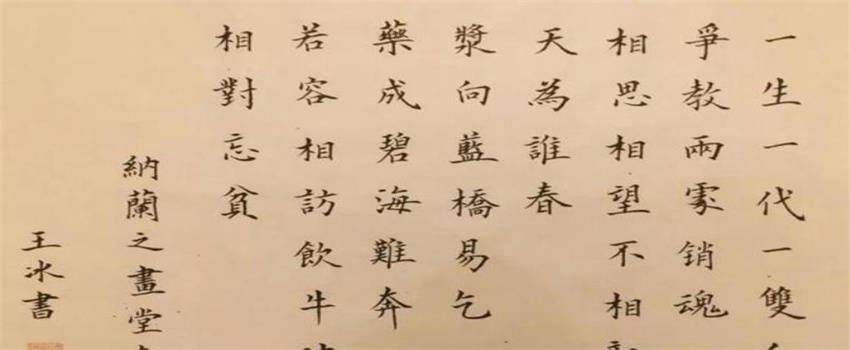 一生一代一雙
爭教兩處销魂
相思相望不相
天為誰春
漿向藍橋易乞
藥成碧海難奔
若容相訪飲牛
相對忘貧
納蘭之畫堂
王冰書